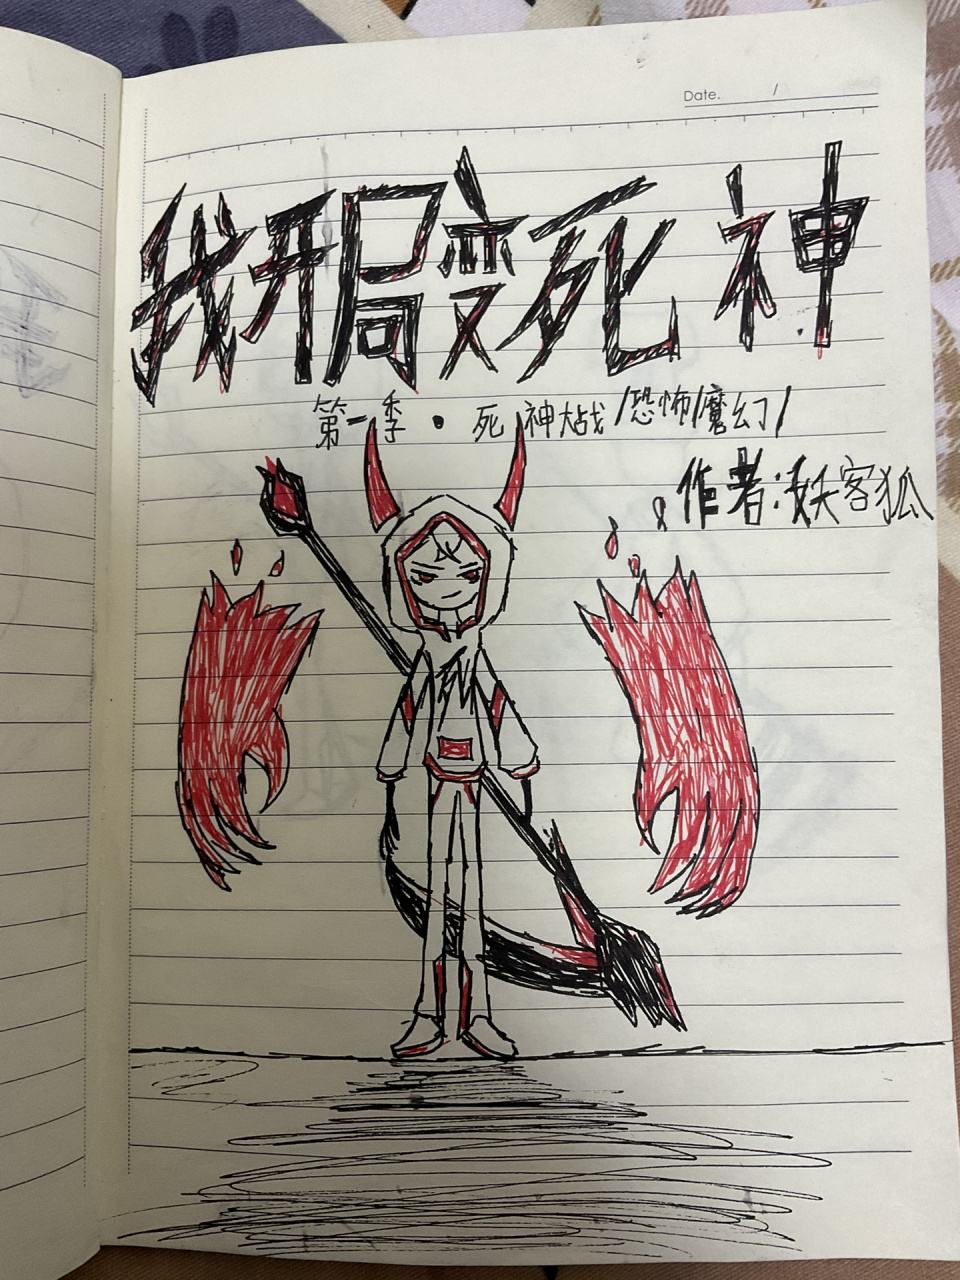 Date. /
我开局变死神
第一季·死神大战/恐怖/魔幻/
作者:妖客狐
死